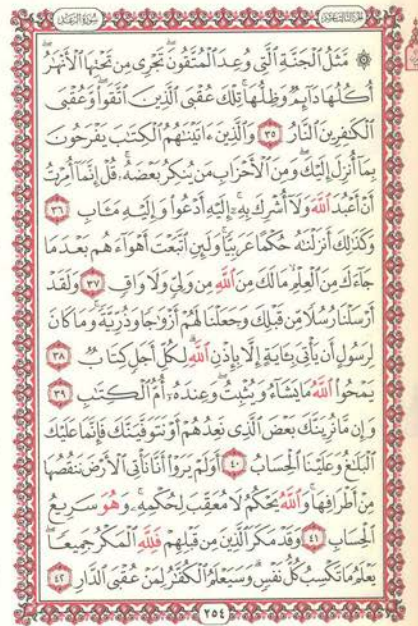 سُورَةُ الرَّعْدِ
الجزء الثالث عشر
۞ مَّثَلُ ٱلْجَنَّةِ ٱلَّتِى وُعِدَ ٱلْمُتَّقُونَ ۖ تَجْرِى مِن تَحْتِهَا ٱلْأَنْهَٰرُ ۖ
أُكُلُهَا دَآئِمٌ وَظِلُّهَا ۚ تِلْكَ عُقْبَى ٱلَّذِينَ ٱتَّقَوا۟ ۖ وَّعُقْبَى
ٱلْكَٰفِرِينَ ٱلنَّارُ ٣٥ وَٱلَّذِينَ ءَاتَيْنَٰهُمُ ٱلْكِتَٰبَ يَفْرَحُونَ
بِمَآ أُنزِلَ إِلَيْكَ ۖ وَمِنَ ٱلْأَحْزَابِ مَن يُنكِرُ بَعْضَهُۥ ۚ قُلْ إِنَّمَآ أُمِرْتُ
أَنْ أَعْبُدَ ٱللَّهَ وَلَآ أُشْرِكَ بِهِۦٓ ۚ إِلَيْهِ أَدْعُوا۟ وَإِلَيْهِ مَـَٔابِ ٣٦
وَكَذَٰلِكَ أَنزَلْنَٰهُ حُكْمًا عَرَبِيًّا ۚ وَلَئِنِ ٱتَّبَعْتَ أَهْوَآءَهُم بَعْدَمَا
جَآءَكَ مِنَ ٱلْعِلْمِ مَا لَكَ مِنَ ٱللَّهِ مِن وَلِىٍّ وَلَا وَاقٍ ٣٧ وَلَقَدْ
أَرْسَلْنَا رُسُلًا مِّن قَبْلِكَ وَجَعَلْنَا لَهُمْ أَزْوَٰجًا وَذُرِّيَّةً ۚ وَمَا كَانَ
لِرَسُولٍ أَن يَأْتِىَ بِـَٔايَةٍ إِلَّا بِإِذْنِ ٱللَّهِ ۗ لِكُلِّ أَجَلٍ كِتَابٌ ٣٨
يَمْحُوا۟ ٱللَّهُ مَا يَشَآءُ وَيُثْبِتُ ۖ وَعِندَهُۥٓ أُمُّ ٱلْكِتَٰبِ ٣٩
وَإِن مَّا نُرِيَنَّكَ بَعْضَ ٱلَّذِى نَعِدُهُمْ أَوْ نَتَوَفَّيَنَّكَ فَإِنَّمَا عَلَيْكَ
ٱلْبَلَٰغُ وَعَلَيْنَا ٱلْحِسَابُ ٤٠ أَوَلَمْ يَرَوْا۟ أَنَّا نَأْتِى ٱلْأَرْضَ نَنقُصُهَا
مِنْ أَطْرَافِهَا ۚ وَٱللَّهُ يَحْكُمُ لَا مُعَقِّبَ لِحُكْمِهِۦ ۚ وَهُوَ سَرِيعُ
ٱلْحِسَابِ ٤١ وَقَدْ مَكَرَ ٱلَّذِينَ مِن قَبْلِهِمْ فَلِلَّهِ ٱلْمَكْرُ جَمِيعًا ۖ
يَعْلَمُ مَا تَكْسِبُ كُلُّ نَفْسٍ ۗ وَسَيَعْلَمُ ٱلْكُفَّٰرُ لِمَنْ عُقْبَى ٱلدَّارِ ٤٢
٢٥٤